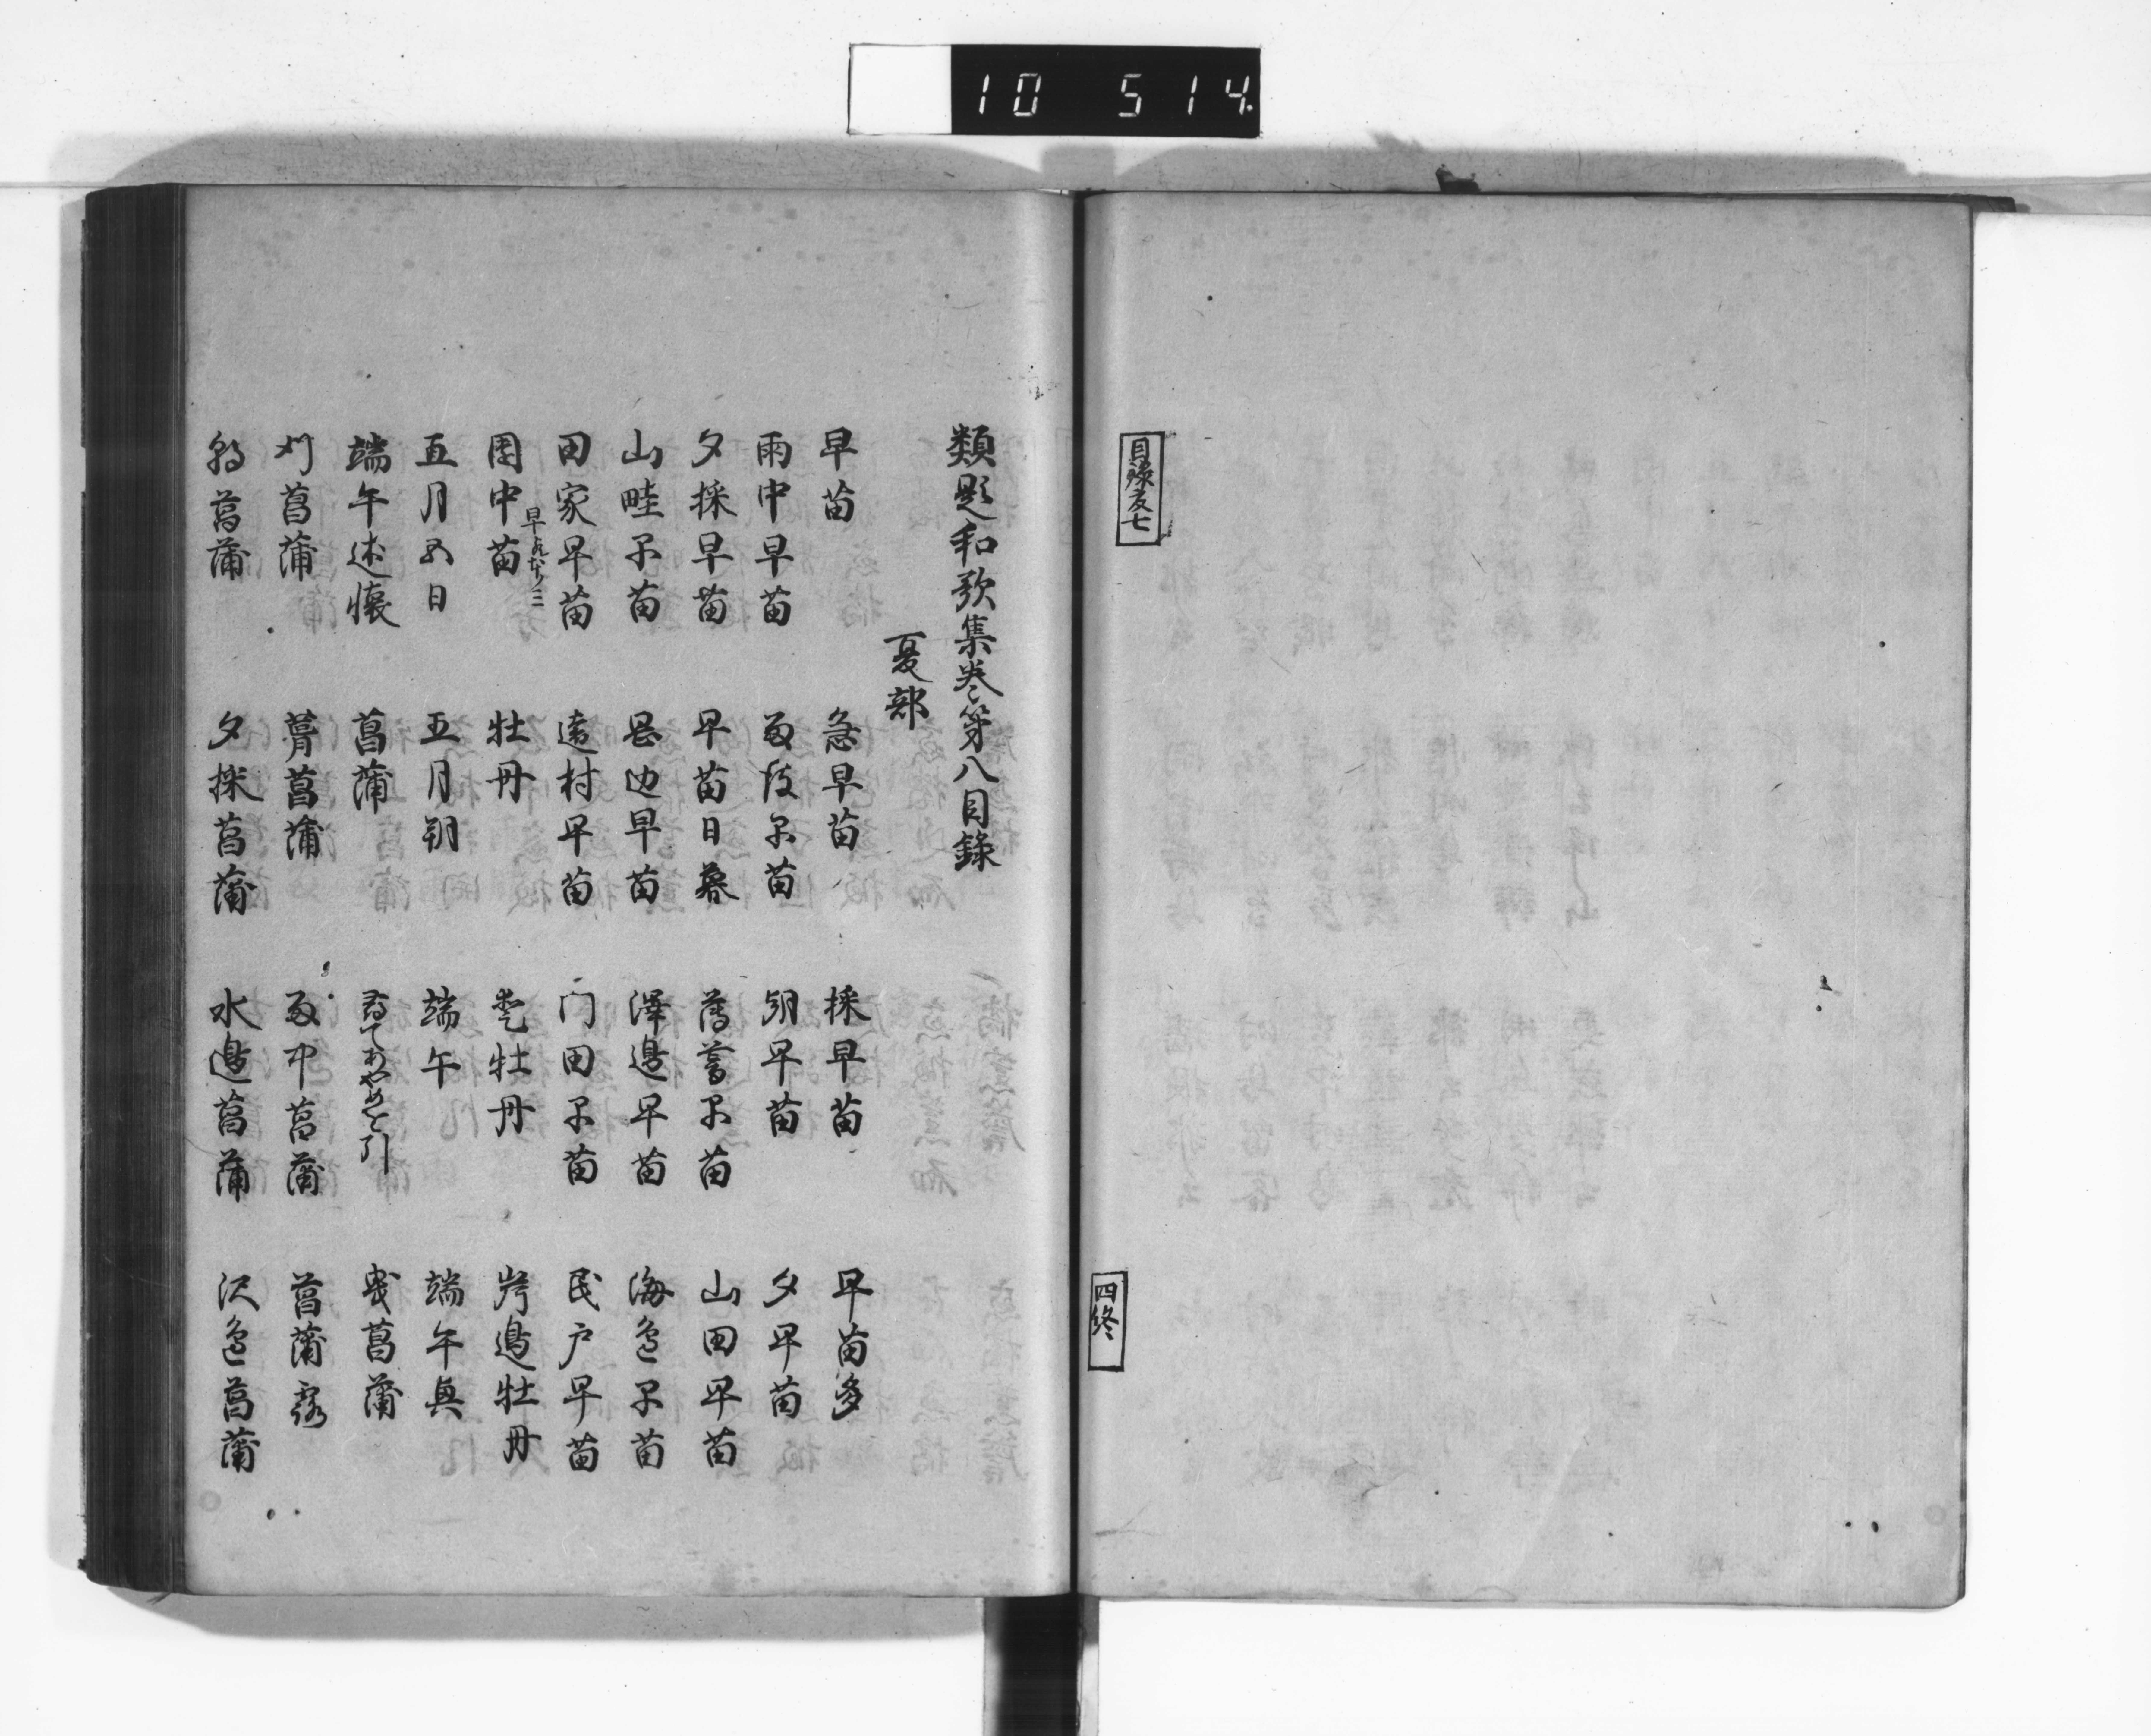 10 514
目録夏七
四終
類題和歌集巻第八目録
夏部
早苗 急早苗 採早苗 早苗多
雨中早苗 雨後早苗 朝早苗 夕早苗
夕採早苗 早苗日暮 薄暮早苗 山田早苗
山畦早苗 岡辺早苗 澤邊早苗 海邊早苗
田家早苗 遠村早苗 門田早苗 民戸早苗
閏中苗 牡丹 牡丹 岸邊牡丹
五月五日 五月朔 端午 端午興
端午述懐 菖蒲 尋てあやめを引 曳菖蒲
刈菖蒲 葺菖蒲 雨中菖蒲 菖蒲露
朝菖蒲 夕採菖蒲 水邊菖蒲 沢邊菖蒲